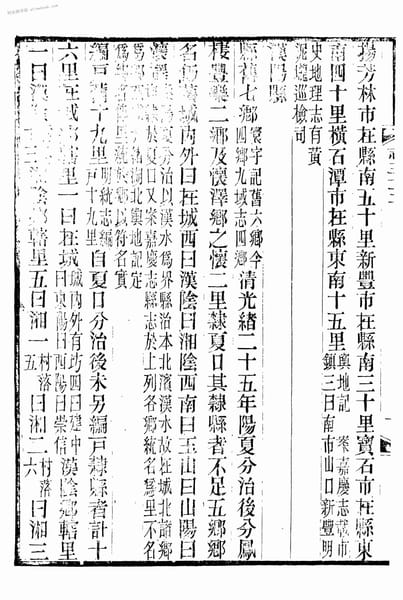 揚芳林市在縣南五十里新豐市在縣南三十里寶石市在縣東
南四十里橫石潭市在縣東南十五里 輿地記 案嘉慶志載市
鎮三曰南市山口新豐明
史地理志有黃
泥壟巡檢司
漢陽縣
縣舊七鄉 寰宇記舊六鄉今
四鄉九域志四鄉 清光緒二十五年陽夏分治後分鳳
棲豐樂二鄉及懷澤鄉之懷二里隸夏口其隸縣者不足五鄉鄉
名曰漢城內外曰在城西曰漢陰曰湘陰西南曰玉山曰山陽曰
漢 夏分治以漢水為界縣治本北濱漢水故在城北濱
漢 夏口又案嘉慶志縣志於上列各鄉統名為里不名
為 鄉以符名實
編戶 十九里 明統志編
戶十九里 自夏口分治後未另編戶隸縣者計十
六里在城鄉轄里一曰在城 城內外有坊四曰建中
曰東陽曰西陽曰崇信 漢陰鄉轄里
一曰漢 陰鄉轄里五曰湘一 村落
五 曰湘二 村落
六 曰湘三